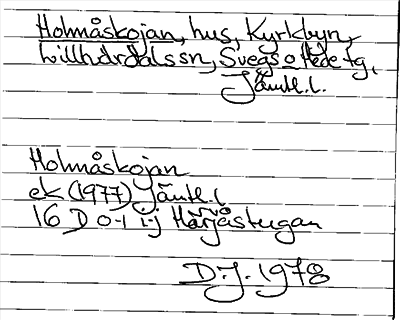 Holmåskojan, hus, Kyrkbyn,
Lillhärdals sn, Svegs o Hede tg,
Jämtl. l.
Holmåskojan
ek (1977) Jämtl. l
16 D 0-1 i-j Härjåstugan
D. J. 1978